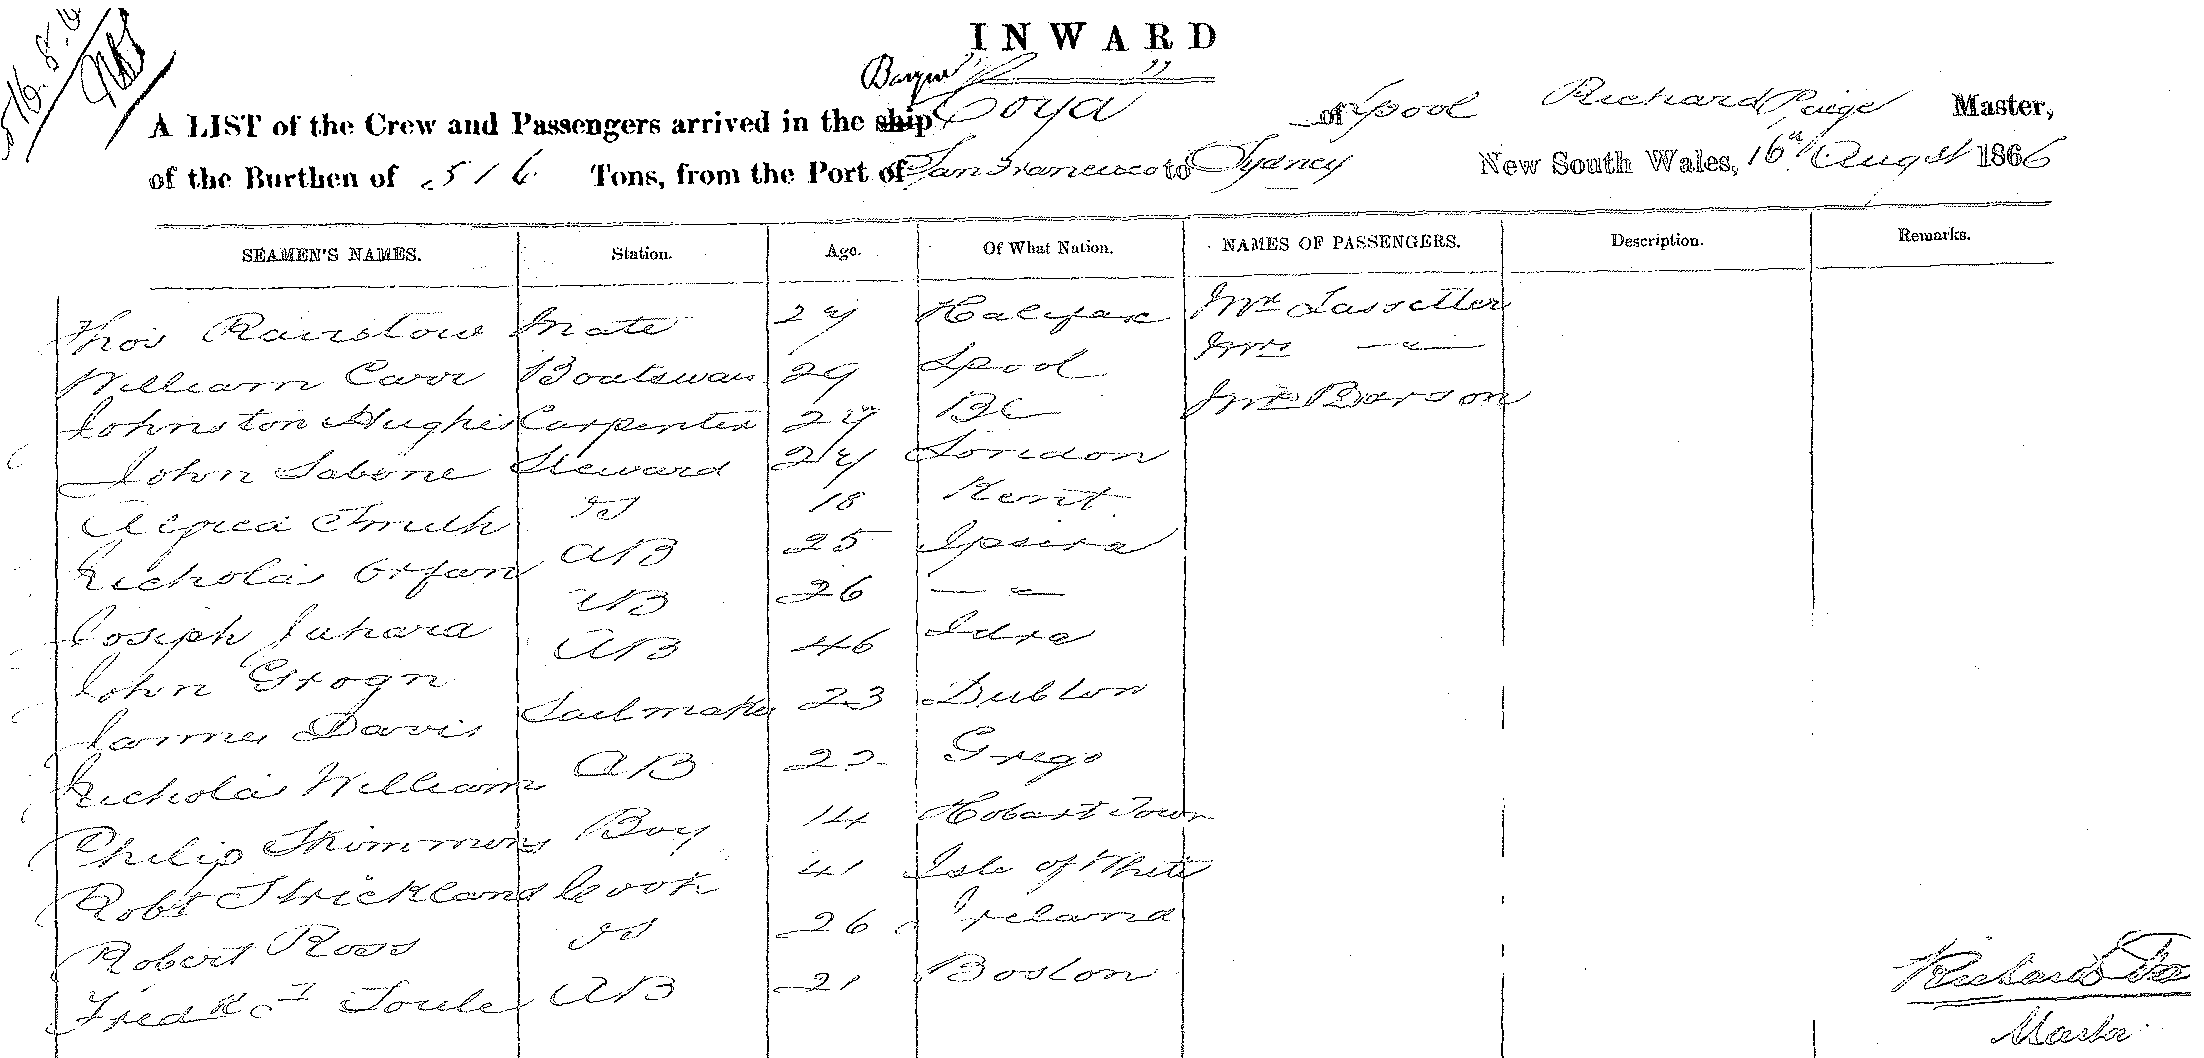 516. 8. 6
INWARD
Barque
A LIST of the Crew and Passengers arrived in the ship Coya of Lpool Richard Paige Master,
of the Burthen of 516 Tons, from the Port of San Francisco to Sydney New South Wales, 16th August 1866
SEAMEN'S NAMES. Station. Age. Of What Nation. NAMES OF PASSENGERS. Description. Remarks.
Thos Rairstow Mate 27 Halifax Mr Lassetter
William Carr Boatswain 29 Lpool Mrs — " —
Johnston Hughes Carpenter 27 Do Mr Pearson
John Sabine Steward 27 London
Alfred Smith Do 18 Kent
Nicholas Orfan AB 25 Ipsira
Joseph Juhara AB 26 — " —
John Grogn AB 46 Idra
James Davis Sailmaker 23 Dublin
Nicholas William AB 22 Grego
Philip Skimmons Boy 14 Hobart Town
Robt Strickland Cook 41 Isle of White
Robert Ross Do 26 Ireland
Fredk J Soule AB 21 Boston
Richard
Master